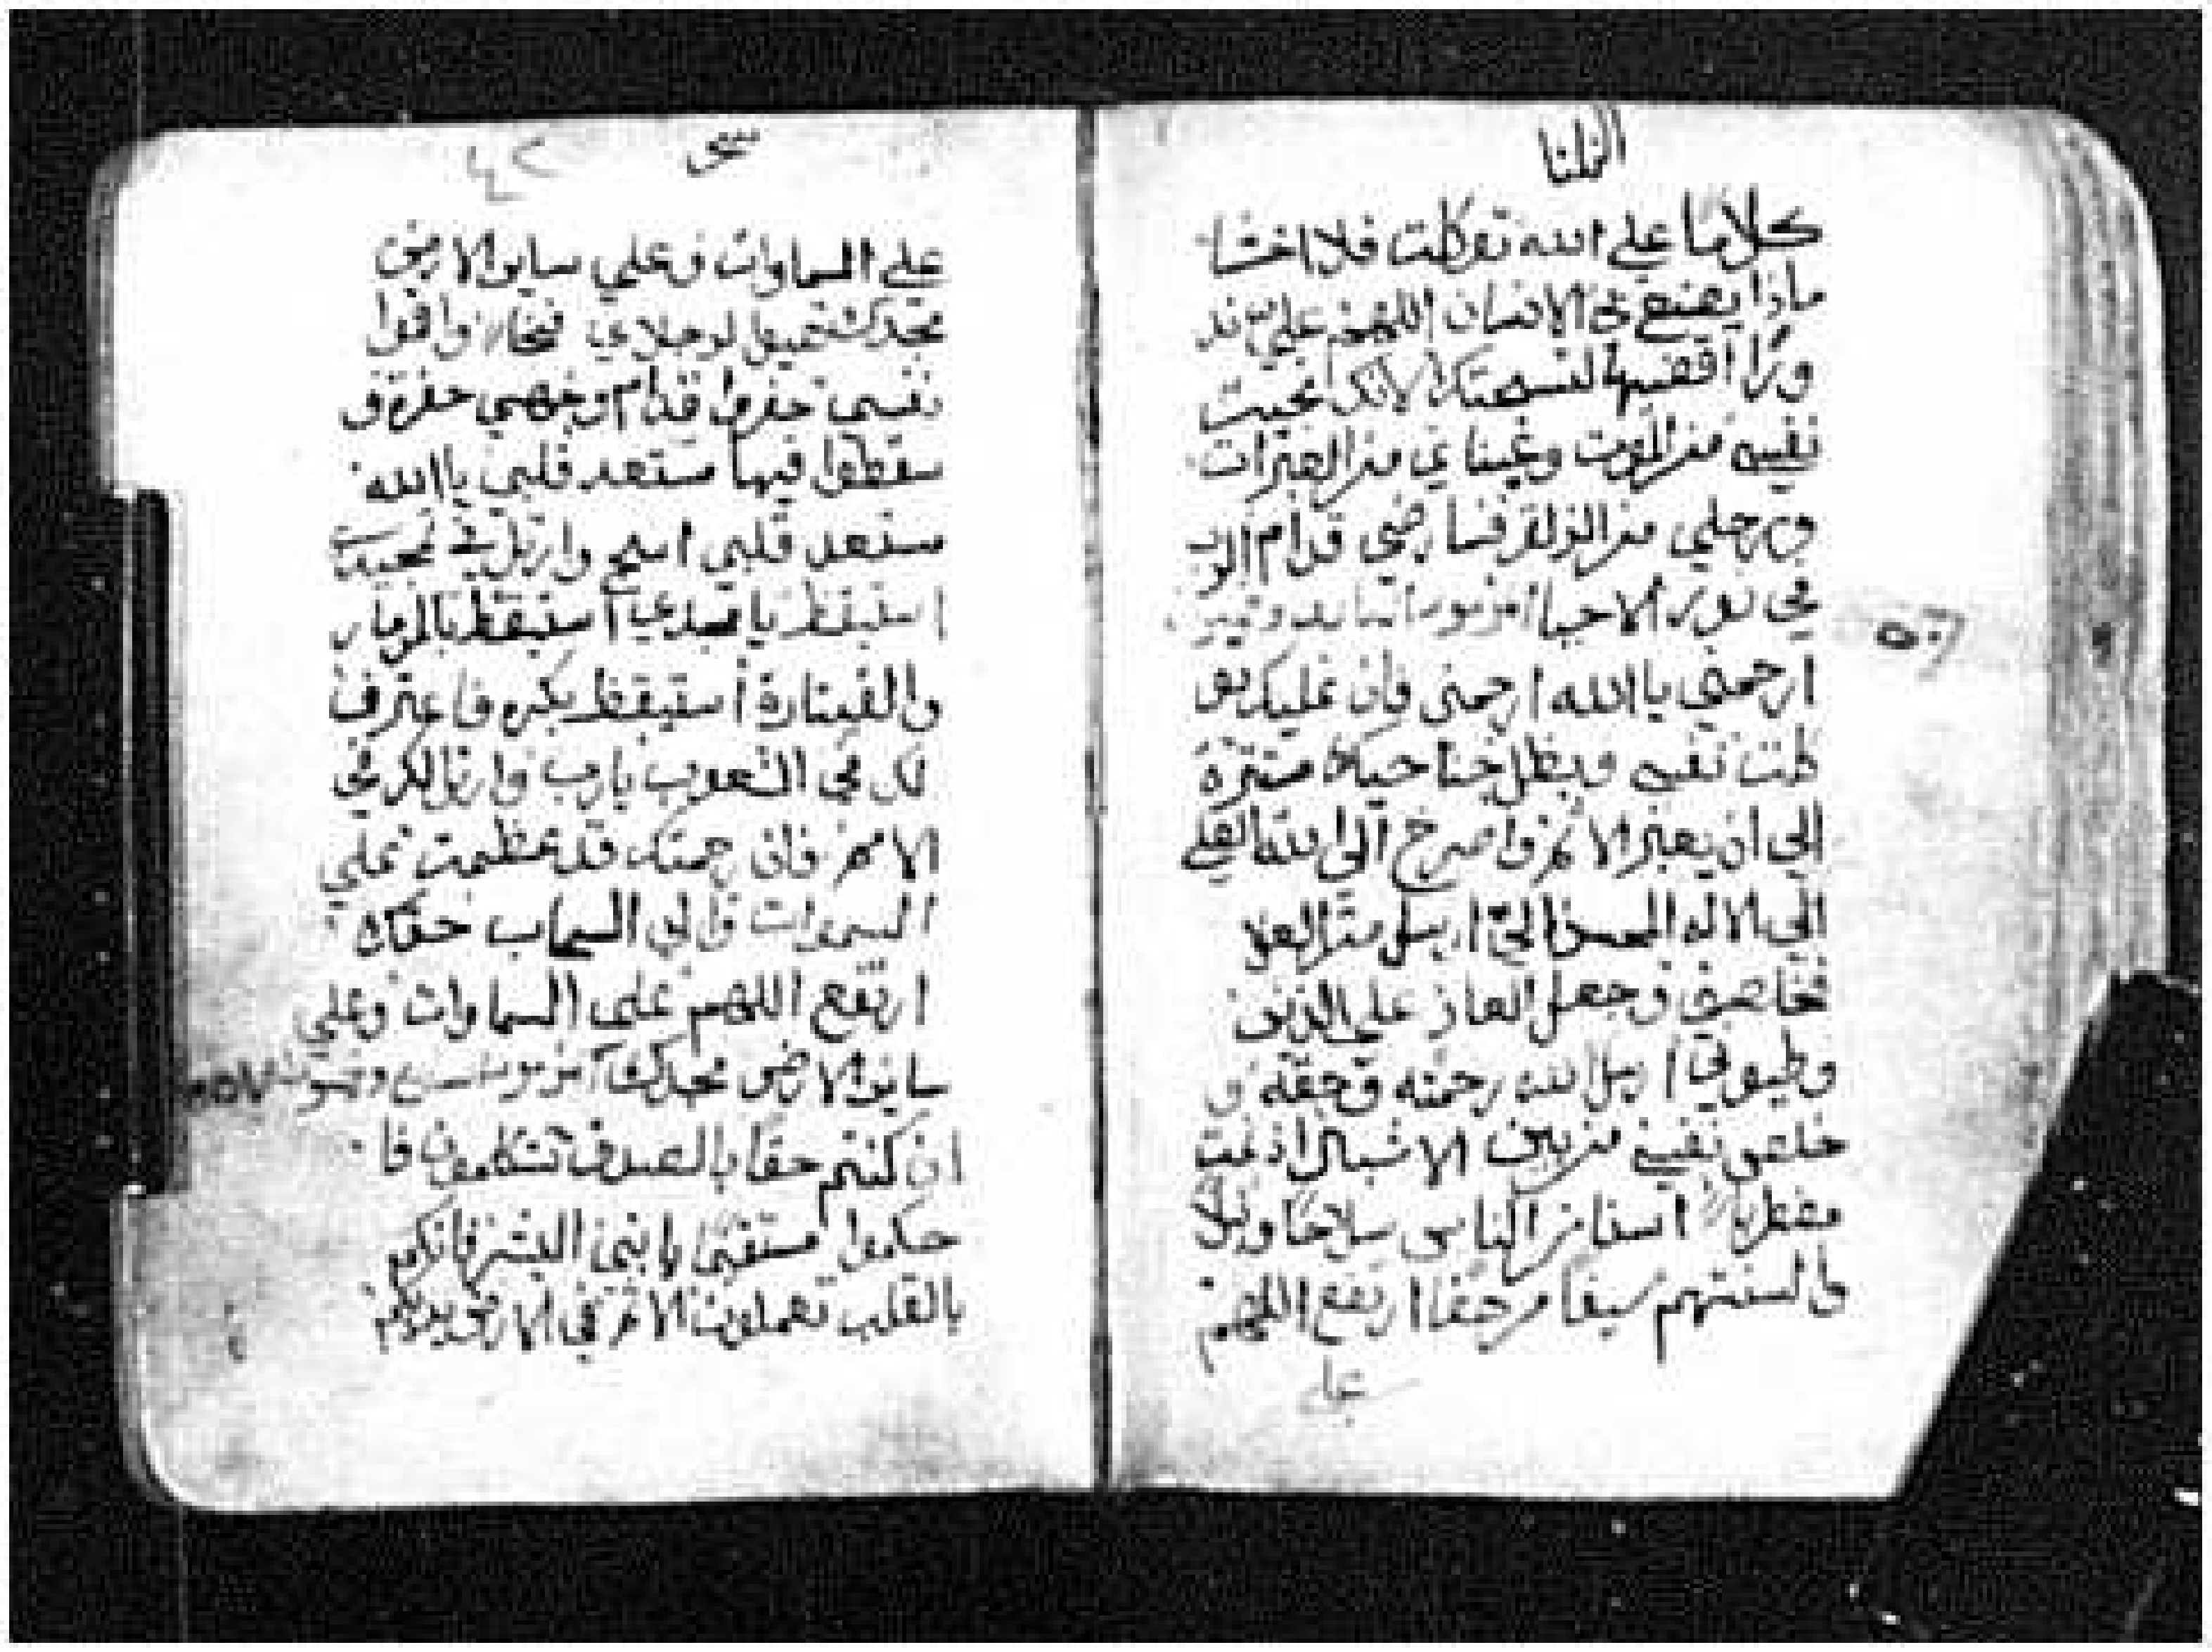 الثلثا
كلاما علي الله توكلت فلا اخشا
ماذا يصنع بي الانسان اللهم علي ند
ورًا اقضيها لتسبحتك لانك نجيت
نفسي من الموت وعيناي من العبرات
ورجلي من الزلق فسارضي قدام الرب
في نور الاحيا
٥٦
ارحمني يا الله ارحمني فان عليك تو
كلت نفسي وبظل جناحيك مستترة
الي ان يعبر الاثم واصرخ الي الله العلي
الي الاله المحسن الي ارسل من العلا
فخلصني وجعل العار علي الذين
وطيوني ارسل الله رحمته وحقه و
خلص نفسي من بين الاشبال اذ نمت
مضطربا اسنان الناس سلاحا ونبلا
والسنتهم سيفا مرهفا ارتفع اللهم
علي
علي السماوات وعلي ساير الارض
مجدك نصبوا لرجلاي فخاخ واقوا
نفسي حفروا قدام وجهي حفرة و
سقطوا فيها مستعد قلبي يا الله
مستعد قلبي اسبح وارتل في تمجيدي
استيقظ يا مجدي استيقظ بالمزمار
والقيتارة استيقظ بكره فاعترف
لك في الشعوب يارب وارتل لك في
الامم فان رحمتك قد عظمت علي
السموات والي السحاب حقك
ارتفع اللهم علي السماوات وعلي
ساير الارض مجدك
ان كنتم حقا بالصدق تتكلمون فا
حكموا مستقيما يا بني البشر فانكم
بالقلب تعملون الاثم في الارض